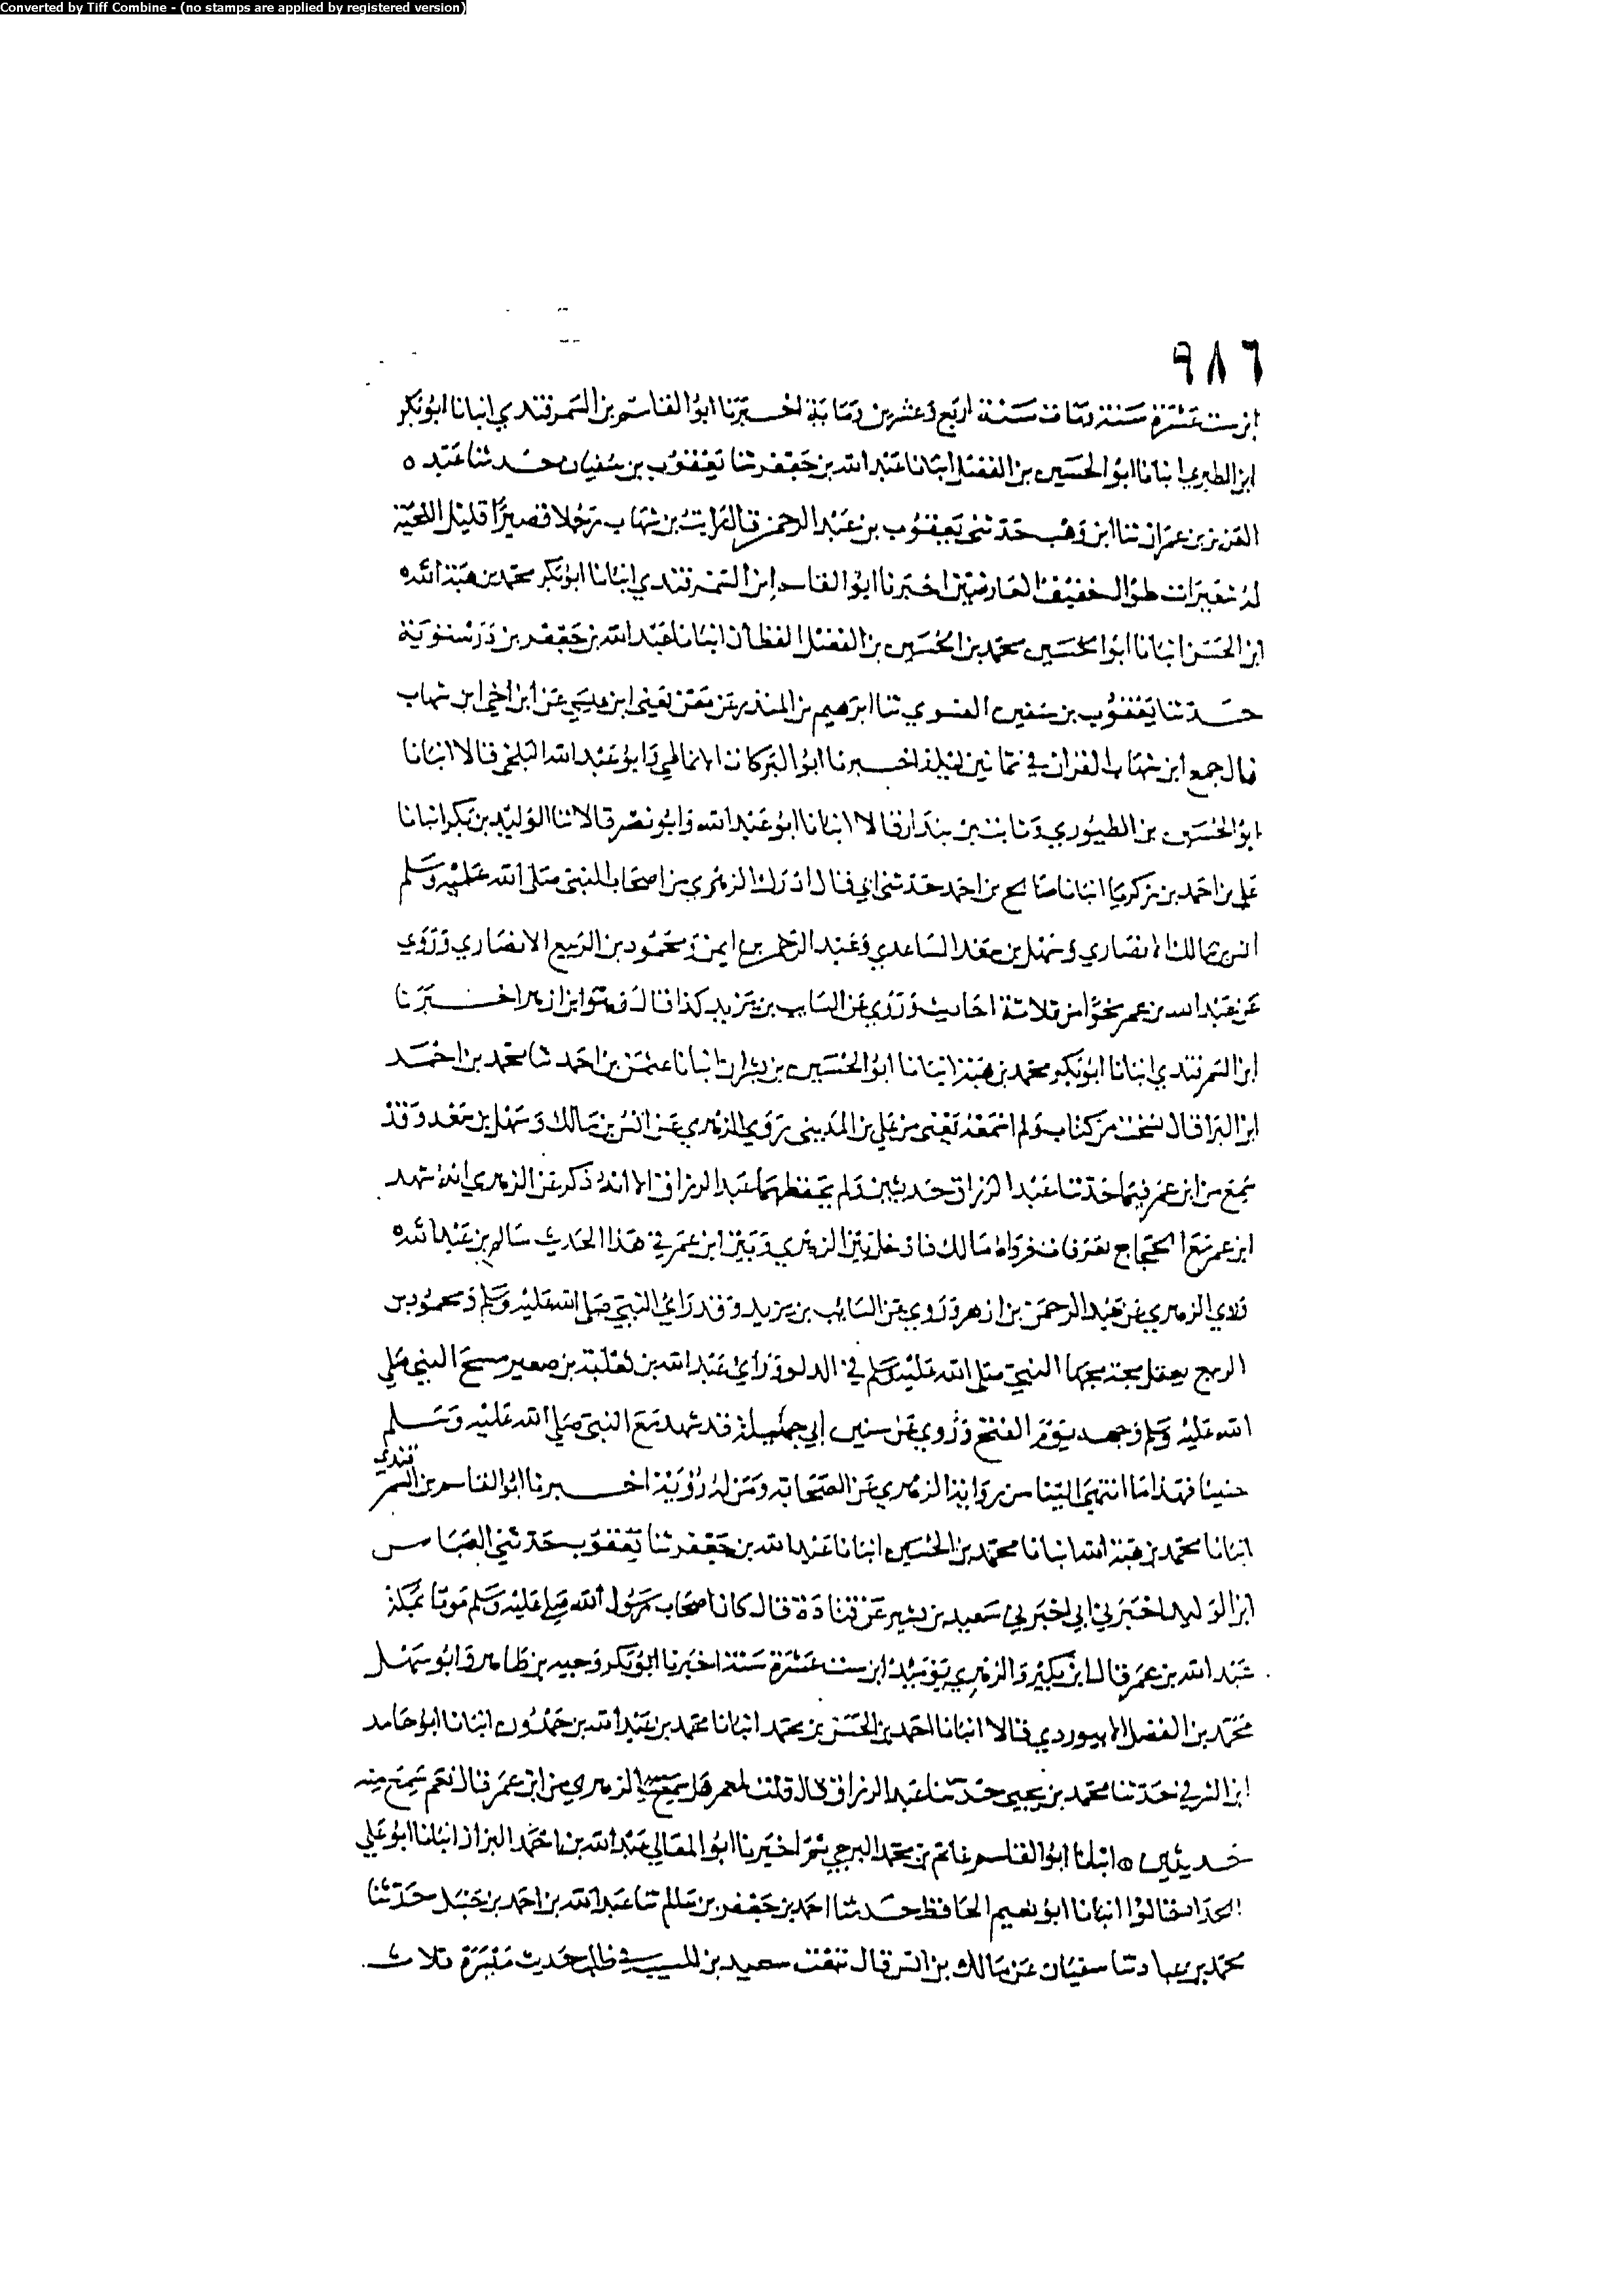 Converted by Tiff Combine - (no stamps are applied by registered version)
٩٨٦
ابن ست عشرة سنة ومات سنة اربع وعشرين ومائة اخبرنا ابو القاسم بن السمرقندي انبانا ابو بكر
ابن الطبري انبانا ابو الحسين بن الفضل انبانا عبد الله بن جعفر ثنا يعقوب بن سفيان حدثنا عبد ه
العزيز بن عمران ثنا ابن وهب حدثني يعقوب بن عبد الرحمن قال رايت بن شهاب رجلا قصيرا قليل اللحية
له شعيرات طوال خفيف العارضين اخبرنا ابو القاسم ابن السمرقندي انبانا ابو بكر محمد بن هبة الله ه
ابن الحسن انبانا ابو الحسين محمد بن الحسين بن الفضل القطان انبانا عبد الله بن جعفر بن درستوية
حدثنا يعقوب بن سفين الفسوي ثنا ابرهيم بن المنذر عن معن يعني ابن عيسي عن ابن اخي ابن شهاب
قال جمع ابن شهاب القران في ثمانين ليلة اخبرنا ابو البركات الانماطي وابو عبد الله البلخي قالا انبانا
ابو الحسين بن الطيوري وثابت بن بندار قالا انبانا ابو عبد الله وابو نصر قالا ثنا الوليد بن بكر انبانا
علي بن احمد بن زكريا انبانا صالح بن احمد حدثني ابي قال ادرك الزهري من اصحاب النبي صلى الله عليه وسلم
انس بن مالك الانصاري وسهل بن سعد الساعدي وعبد الرحمن بن ايمن ومحمود بن الربيع الانصاري وروي
عن عبد الله بن عمر نحوا من ثلاثة احاديث وروي عن السايب بن يزيد كذا قال وهو ابن ازهر اخبرنا
ابن السمرقندي انبانا ابو بكر محمد بن هبة انبانا ابو الحسين بن بشران انبانا عثمن بن احمد ثنا محمد بن احمد
ابن البرا قال نسخت من كتاب ولم اسمعه يعني من علي بن المديني روي الزهري عن انس بن مالك وسهل بن سعد وقد
سمع من ابن عمر فيما حدثنا عبد الرزاق حديثين ولم يحفظهما عبد الرزاق الا انه ذكر عن الزهري انه شهد
ابن عمر مع الحجاج بعرفات فرواه مالك فادخل بين الزهري وبين ابن عمر في هذا الحديث سالم بن عبد الله ه
روي الزهري عن عبد الرحمن بن ازهر وروي عن السايب بن يزيد وقد راي النبي صلى الله عليه وسلم ومحمود بن
الربيع يعقل مجة مجها النبي صلى الله عليه وسلم في الدلو وراي عبد الله بن ثعلبة بن صعير مسح النبي صلي
الله عليه وسلم وجهه يوم الفتح وروي عن سنين ابي جميلة قد شهد مع النبي صلي الله عليه وسلم
حنينا فهذا ما انتهى الينا من رواية الزهري عن الصحابة ومن له رؤية اخبرنا ابو القاسم بن السمرقندي
انبانا محمد بن هبة الله انبانا محمد بن الحسين انبانا عبد الله بن جعفر ثنا يعقوب حدثني العباس
ابن الوليد اخبرني ابي اخبرني سعيد بن بشير عن قتادة قال كان اصحاب رسول الله صلي عليه وسلم موتا بمكة
عبد الله بن عمر قال ابن بكير والزهري يوميذ ابن ست عشرة سنة اخبرنا ابو بكر وجيه بن طاهر وابو سهل
محمد بن الفضل الابيوردي قالا انبانا احمد بن الحسن بن محمد انبانا محمد بن عبد الله بن حمدون انبانا ابو حامد
ابن الشرقي حدثنا محمد بن يحيى حدثنا عبد الرزاق قال قلت لمعمر هل سمع الزهري من ابن عمر قال نعم سمع منه
حديثين ه انبانا ابو القاسم غانم بن محمد البرجي ثم اخبرنا ابو المعالي عبد الله بن احمد البزاز انبانا ابو علي
الحداد قالوا انبانا ابو نعيم الحافظ حدثنا احمد بن جعفر بن سلم ثنا عبد الله بن احمد بن حنبل حدثنا
محمد بن عباد ثنا سفيان عن مالك بن انس قال تبعت سعيد بن المسيب في طلب حديث مسيرة ثلاث